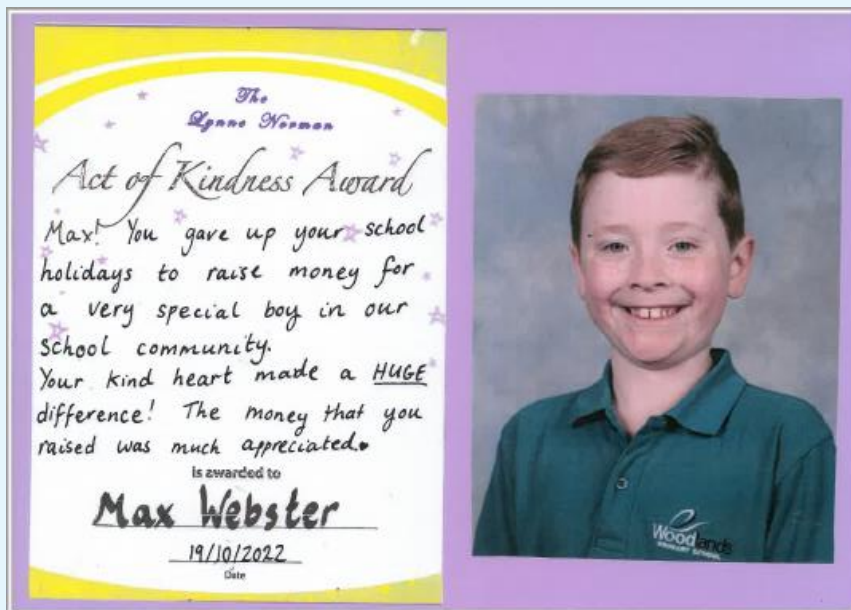 The
Lynne Norman
Act of Kindness Award
Max! You gave up your school
holidays to raise money for
a very special boy in our
school community.
Your kind heart made a HUGE
difference! The money that you
raised was much appreciated.
is awarded to
Max Webster
19/10/2022
Date
Woodlands
PRIMARY SCHOOL